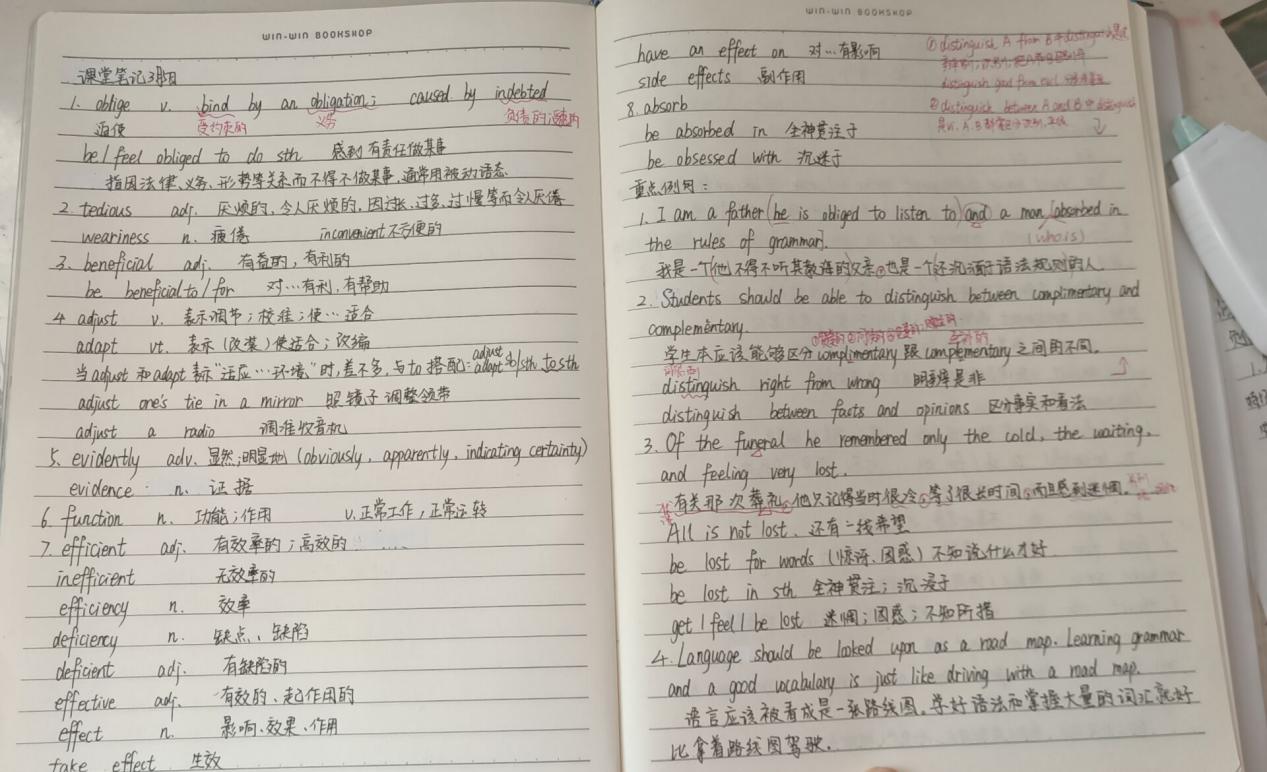 WIN-WIN BOOKSHOP
课堂笔记3月1日
1. oblige v. bind by an obligation; caused by indebted
迫使 受约束的 义务 负债的;
be / feel obliged to do sth 感到有责任做某事
指因法律、义务、形势等关系而不得不做某事,通常用被动语态
2. tedious adj. 厌烦的,令人厌烦的,因过长、过多、过慢等而令人厌倦
weariness n. 疲倦 inconvenient 不方便的
3. beneficial adj. 有益的,有利的
be beneficial to / for 对…有利,有帮助
4 adjust v. 表示调节;校准;使…适合
adapt vt. 表示(改装)使适合;改编
当adjust和adapt表示“适应…环境”时,差不多,与to搭配:adjust
adapt sb/sth to sth
adjust one's tie in a mirror 照镜子调整领带
adjust a radio 调准收音机
5. evidently adv. 显然;明显地 (obviously, apparently, indicating certainty)
evidence n. 证据
6 function n. 功能;作用 v.正常工作,正常运转
7. efficient adj. 有效率的;高效的
inefficient 无效率的
efficiency n. 效率
deficiency n. 缺点、缺陷
deficient adj. 有缺陷的
effective adj. 有效的、起作用的
effect n. 影响、效果、作用
take effect 生效
WIN-WIN BOOKSHOP
have an effect on 对…有影响
side effects 副作用
8. absorb
be absorbed in 全神贯注于
be obsessed with 沉迷于
① distinguish A from B 中distinguish是
distinguish good from evil 分辨善恶
② distinguish between A and B 中distinguish
是vi. A、B
重点例句:
1. I am a father (he is obliged to listen to) and a man [absorbed in
(who is)
the rules of grammar].
我是一个(他不得不听其教诲的)父亲,也是一个(还沉湎于语法规则的)人
2. Students should be able to distinguish between complimentary and
complementary.
学生本应该能够区分complimentary跟complementary之间的不同。
distinguish right from wrong 明辨是非
distinguish between facts and opinions 区分事实和看法
3. Of the funeral he remembered only the cold, the waiting,
and feeling very lost.
有关那次葬礼,他只记得当时很冷,等了很长时间,而且感到迷惘。
All is not lost. 还有一线希望
be lost for words (惊讶、困惑) 不知说什么才好
be lost in sth 全神贯注;沉浸于
get / feel / be lost 迷惘;困惑;不知所措
4. Language should be looked upon as a road map. Learning grammar
and a good vocabulary is just like driving with a road map.
语言应该被看成是一张路线图。学好语法和掌握大量的词汇就好
比拿着路线图驾驶.